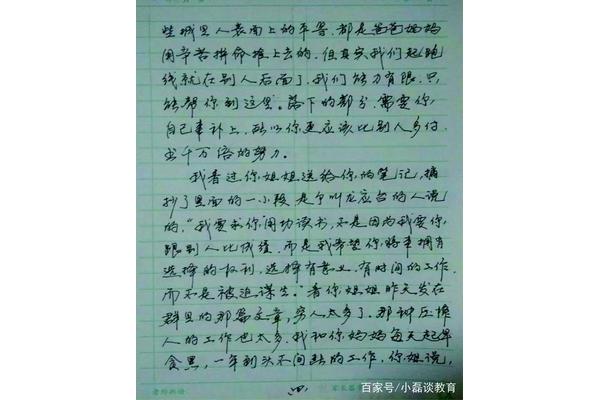 些城里人表面上的平等,都是爸爸妈妈
用辛苦拼命堆上去的,但真实我们起跑
线就在别人后面了,我们能力有限,只
能帮你到这里。落下的部分,需要你
自己来补上,所以你更应该比别人多付
出千万倍的努力。
我看过你姐姐送给你的笔记,摘
抄了里面的一小段是个叫龙应台的人说
的,“我要求你用功读书,不是因为我要你
跟别人比成绩,而是我希望你将来拥有
选择的权利,选择有意义、有时间的工作,
而不是被迫谋生。”看你姐姐昨天发在
群里的那篇文章,穷人太多了,那种压榨
人的工作也太多,我和你妈妈每天起早
贪黑,一年到头不间断的工作,你姐说,
四
老师批语:
百家号/小磊谈教育